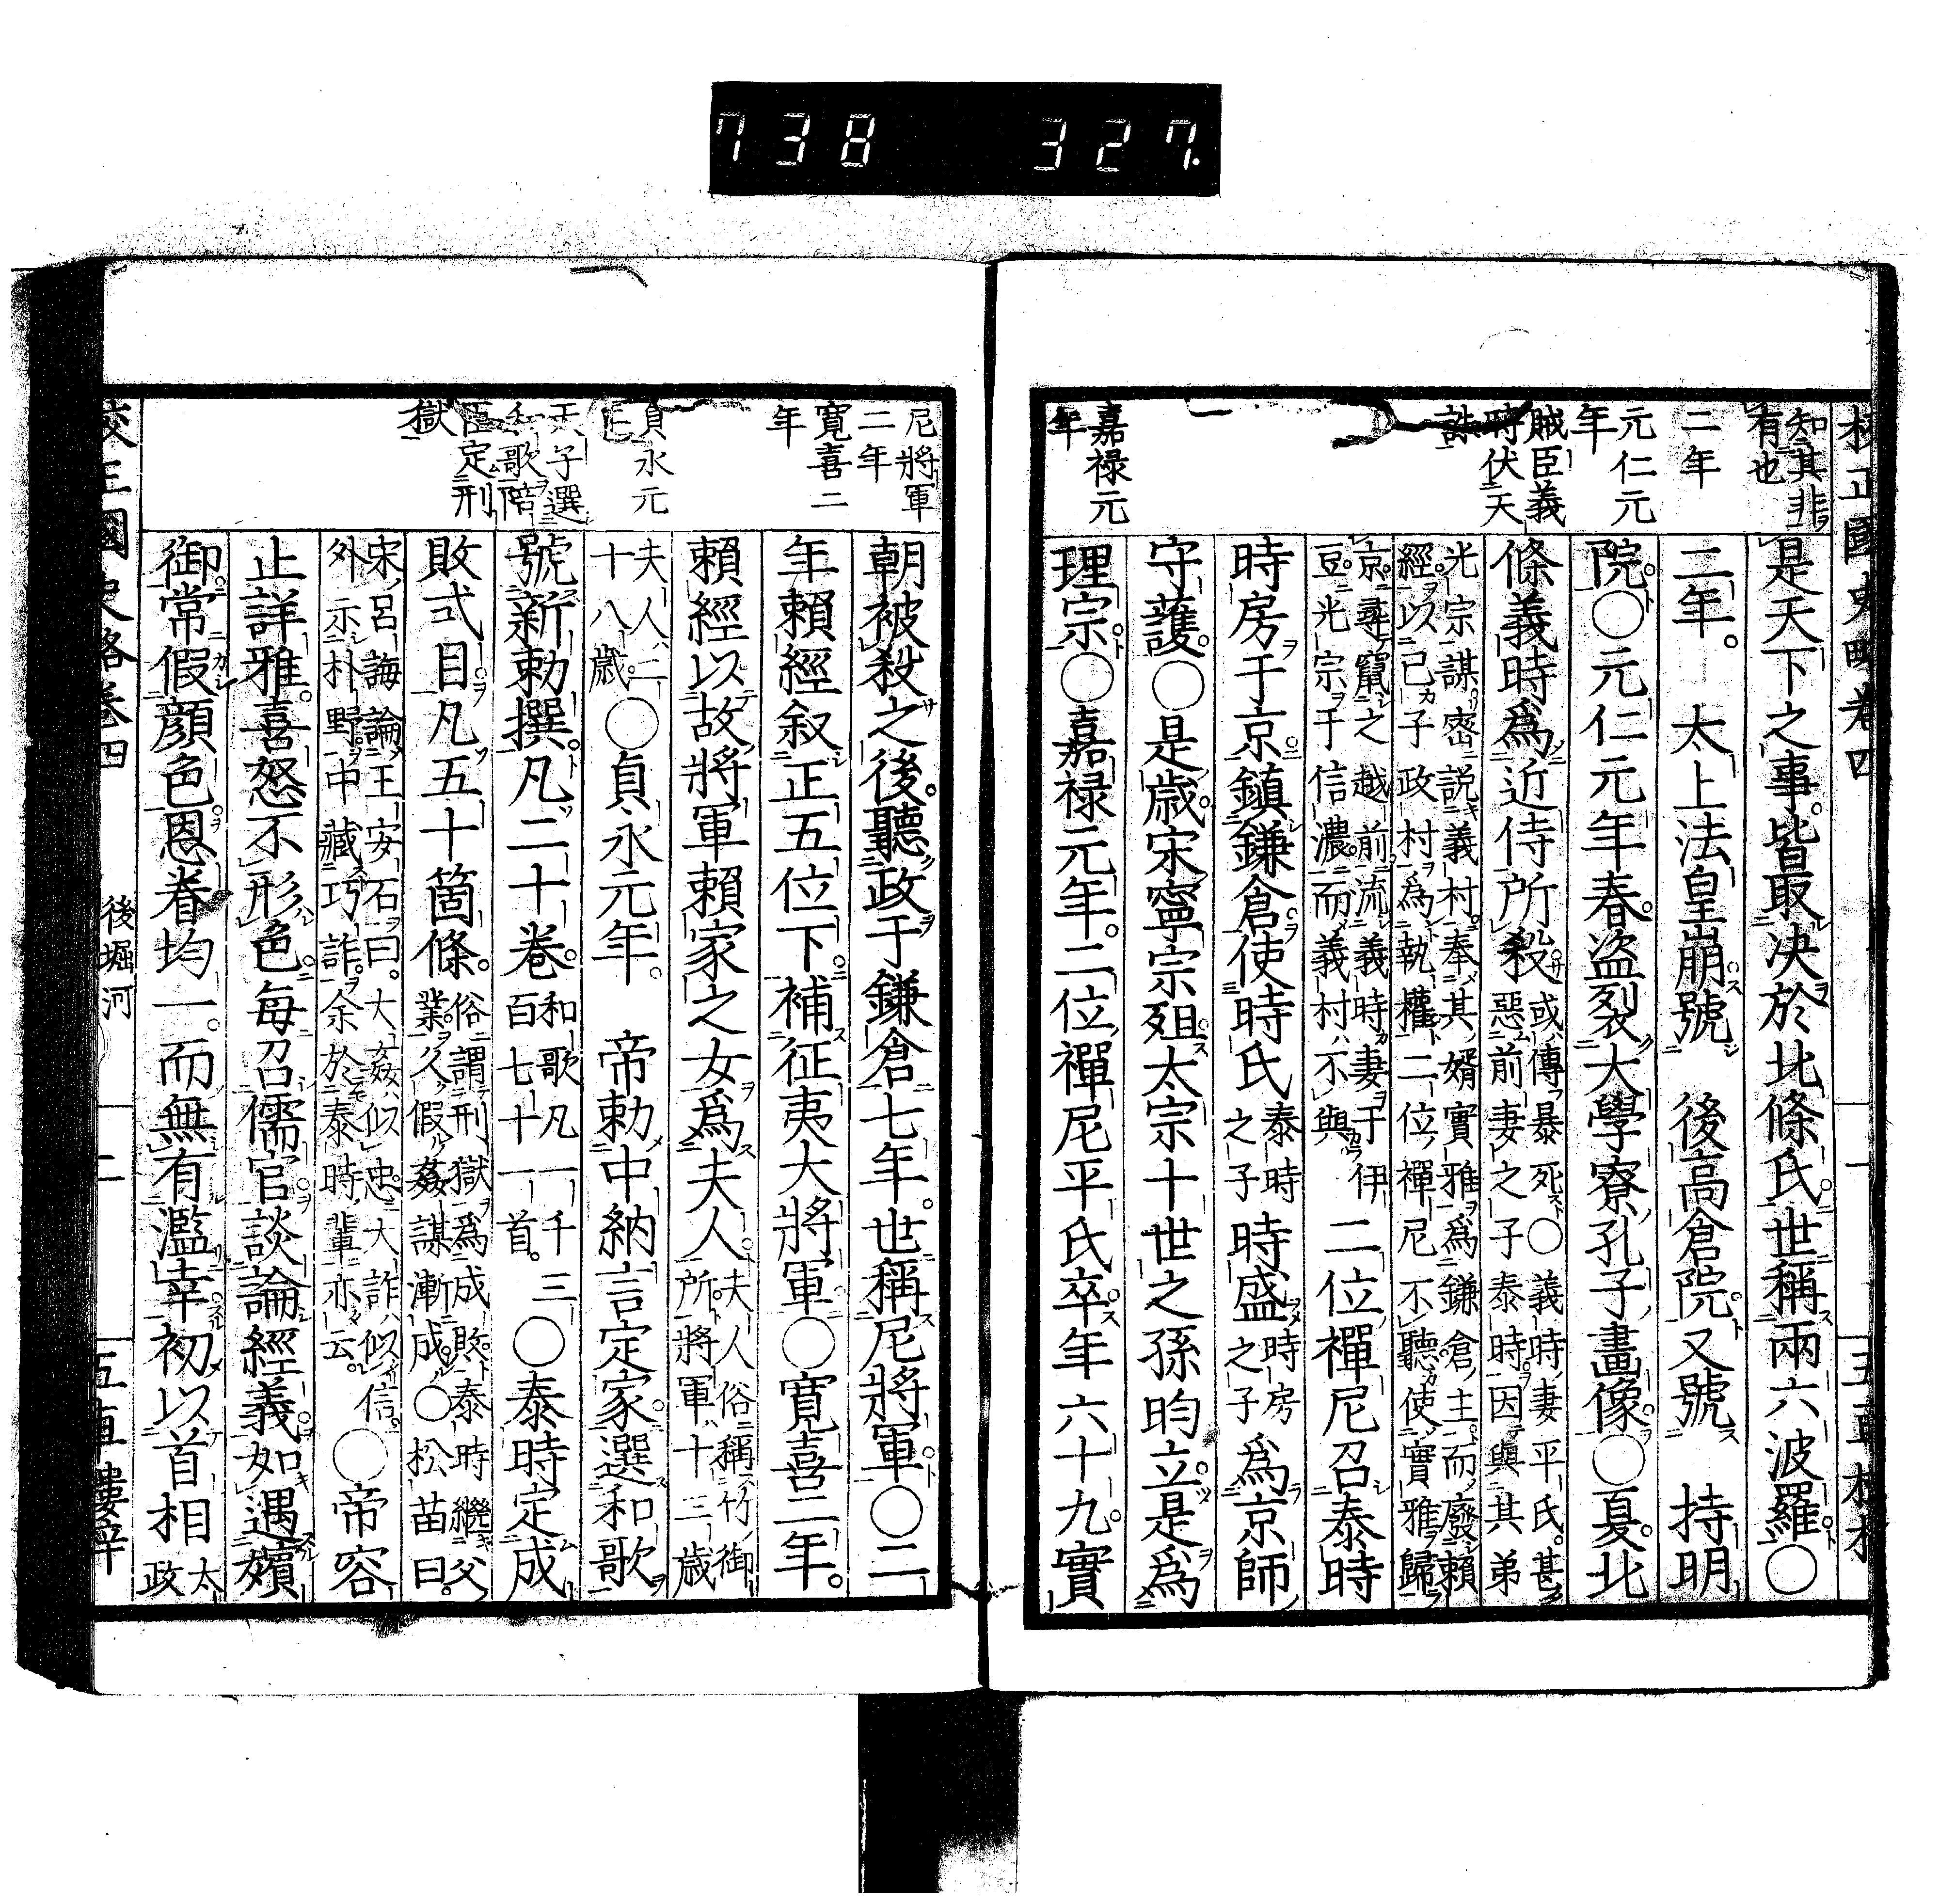 738 327.
校正國史略卷四
知其非
有也
二年
元仁元
年
賊臣義
時伏天
誅
嘉禄元
年
是天下之事皆取决於北條氏世稱兩六波羅○
二年。太上法皇崩號後高倉院又號持明
院○元仁元年春盗裂大學寮孔子畫像○夏北
條義時爲近侍所殺
或傳暴死○義時妻平氏甚
惡前妻之子泰時因與其弟
光宗謀密説義村奉其婿實雅爲鎌倉主而廢賴
經以已子政村爲執權二位禪尼不聽使實雅歸
京尋竄之越前流義時妻于伊
豆光宗于信濃而義村不與
二位禪尼召泰時
時房于京鎮鎌倉使時氏
泰時
之子
時盛
時房
之子
爲京師
守護○是歳宋寧宗殂太宗十世之孫昀立是爲
理宗○嘉禄元年。二位禪尼平氏卒年六十九實
尼將軍
二年
寛喜二
年
貞永元
天子選
和歌陪
臣定刑
獄
朝被殺之後聽政于鎌倉七年。世稱尼將軍○二
年賴經叙正五位下補征夷大將軍○寛喜二年。
賴經以故將軍賴家之女爲夫人
夫人俗稱竹御
所將軍十三歳
夫人二
十八歳
○貞永元年。帝勅中納言定家選和歌
號新勅撰凡二十巻
和歌凡一千三
百七十一首。
○泰時定成
敗式目凡五十箇條。
俗謂刑獄爲成敗泰時繼父
業久假姦謀漸成○松苗曰。
宋呂誨論王安石曰。大姦似忠大詐似信
外示朴野中藏巧詐余於泰時輩亦云。
○帝容
止詳雅喜怒不形色毎召儒官談論經義如遇嬪
御常假顔色恩眷均一。而無有濫幸初以首相
太
政
後堀河
二